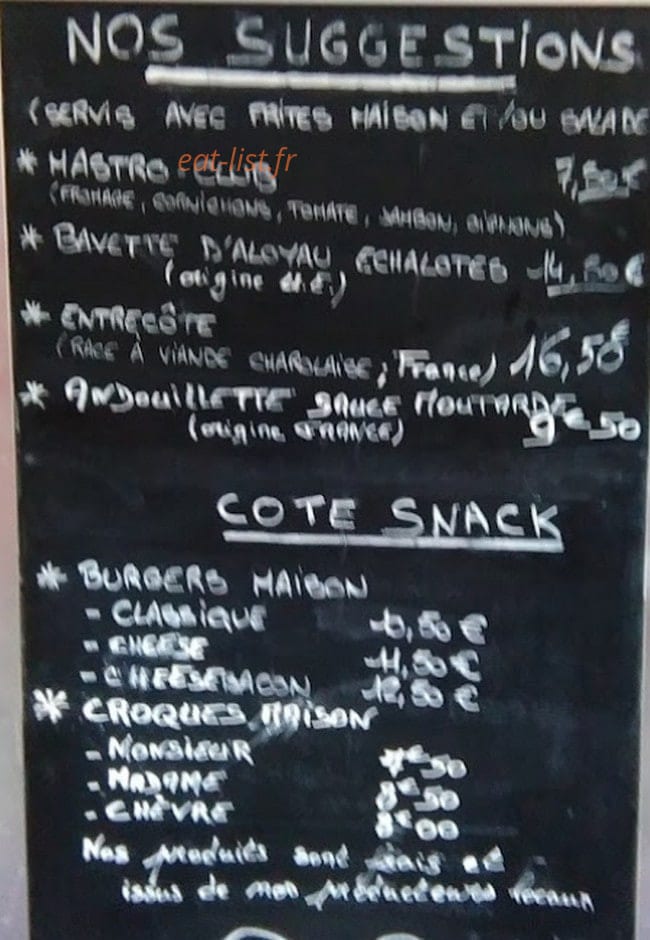 NOS SUGGESTIONS
(SERVIS AVEC FRITES MAISON ET/OU SALADE
* MASTRO CLUB 7,50€
eat-list.fr
(FROMAGE, CORNICHONS, TOMATE, JAMBON, OIGNONS)
* BAVETTE D'ALOYAU ECHALOTES 14,50€
(origine U.E.)
* ENTRECÔTE
(RACE À VIANDE CHAROLAISE, France) 16,50€
* ANDOUILLETTE SAUCE MOUTARDE
(origine FRANCE) 9€50
COTE SNACK
* BURGERS MAISON
- CLASSIQUE
- CHEESE 11,50€
- CHEESEBACON 12,50€
* CROQUES MAISON
- MONSIEUR 7€50
- MADAME 8€50
- CHÈVRE 8€00
Nos produits sont frais et
issus de mon producteurs locaux